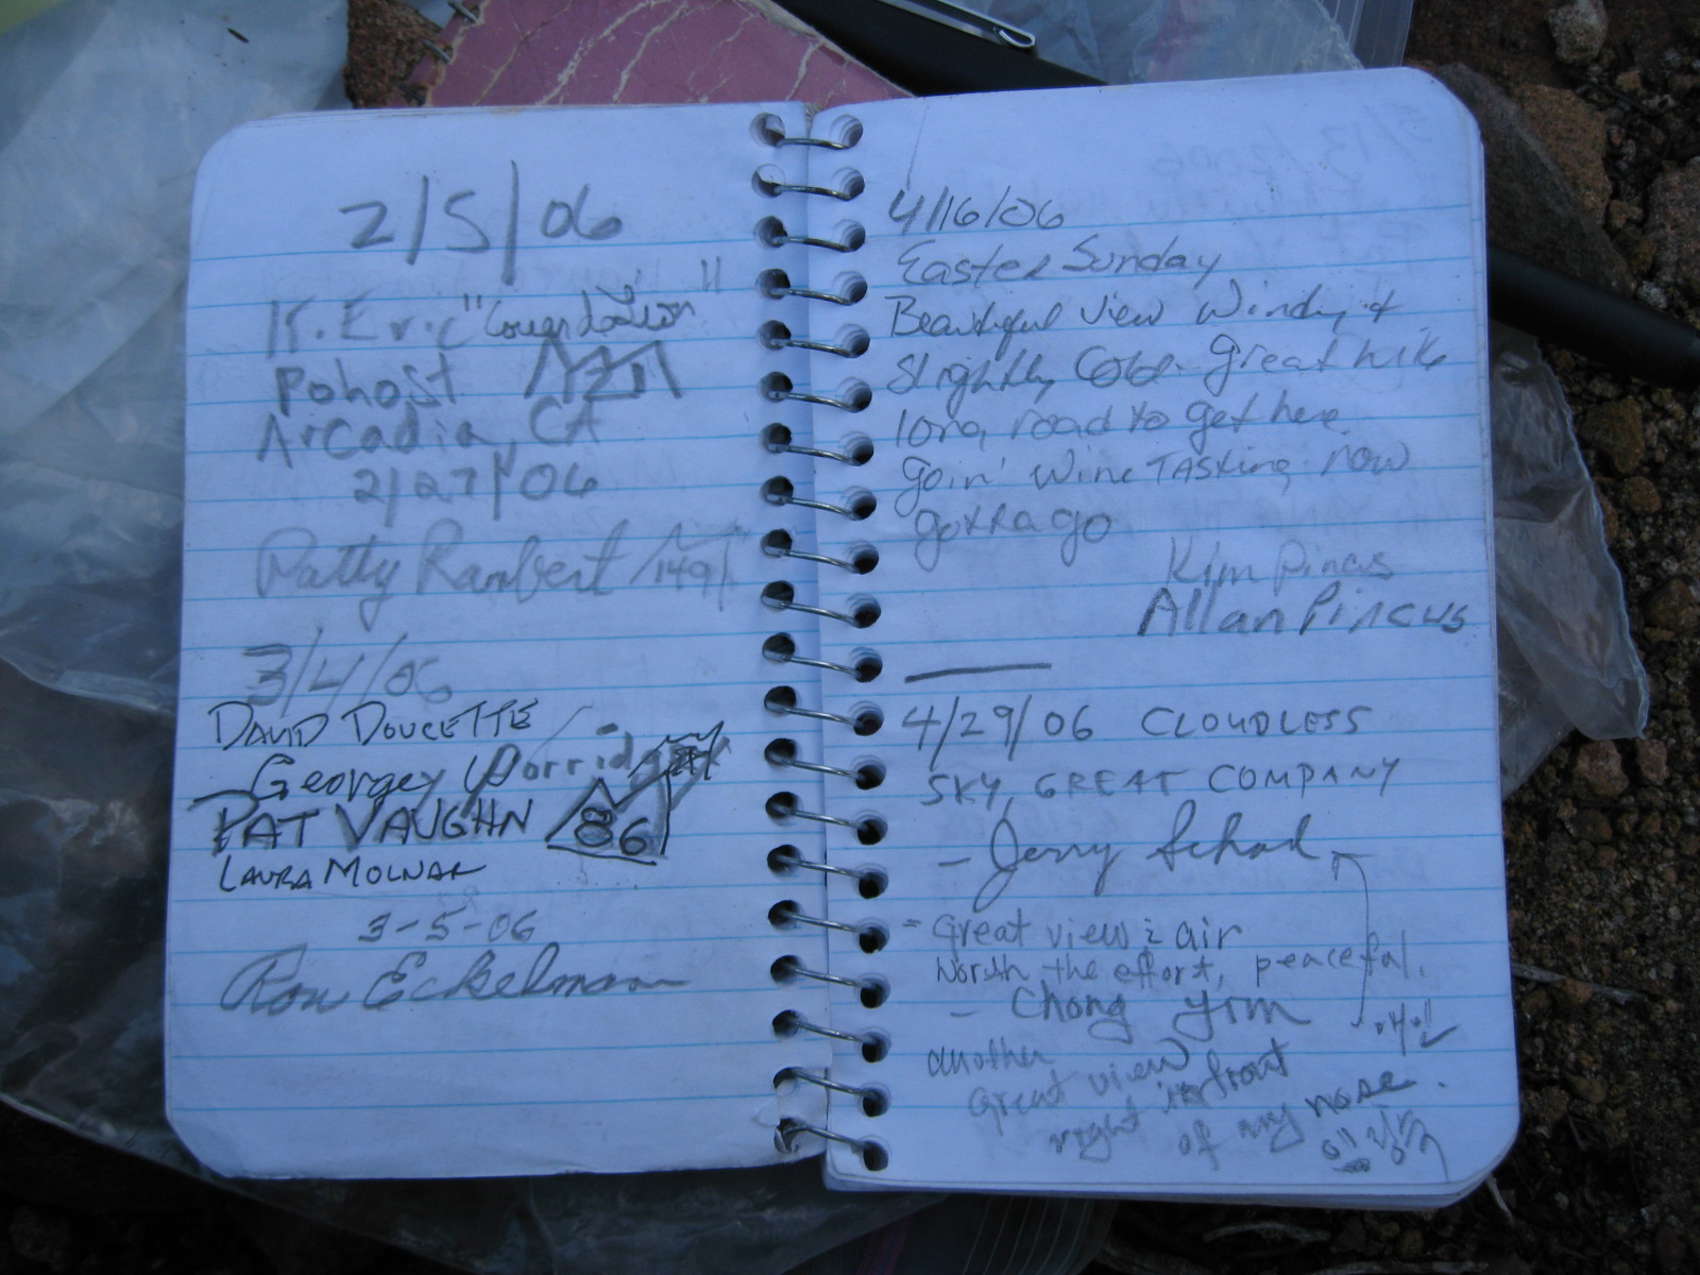 2/5/06
K. Eric "
Pohost
Arcadia, CA
2/27/06
Patty Rambert 149
3/4/06
DAVID DOUCETTE
Georgey
PAT VAUGHN 86
LAURA MOLNAR
3-5-06
Ron Eckelmann
4/16/06
Easter Sunday
Beautiful View Windy +
Slightly Cold. Great hike
long road to get here.
goin' wine TASting now
gotta go
Kim Pincus
Allan Pincus
4/29/06 CLOUDLESS
SKY, GREAT COMPANY
- Jerry Schad
- Great view & air
Worth the effort, peaceful.
- Chong Yim
another
Great view
right in front
of my nose.